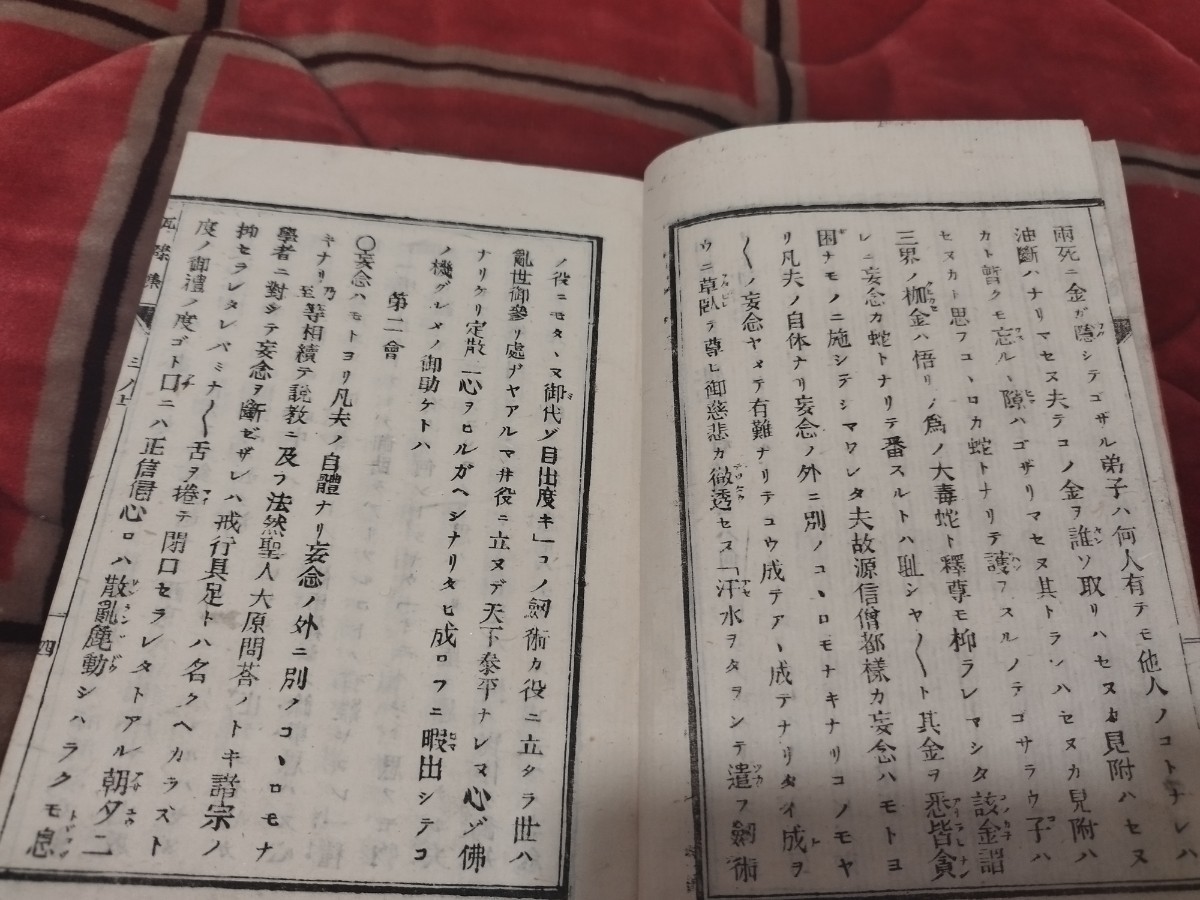 両死ニ金ガ隠シテゴザル弟子ハ何人有テモ他人ノコトナレハ
油斷ハナリマセヌ夫テコノ金ヲ誰ソ取リハセヌカ見附ハセヌ
カト暫クモ忘ルヽ隙ハゴザリマセヌ其トランハセヌカ見附ハ
セヌカト思フコヽロカ蛇トナリテ護フスルノテゴサラウ子ハ
三界ノ枷金ハ悟リノ爲ノ大毒蛇ト釋尊モ柳ラレマシタ該金詔
レニ妄念カ蛇トナリテ番スルトハ耻シヤ〱ト其金ヲ悉皆貪
困ナモノニ施シテシマワレタ夫故源信僧都樣カ妄念ハモトヨ
リ凡夫ノ自体ナリ妄念ノ外ニ別ノコヽロモナキナリコノモヤ
〱ノ妄念ヤメテ有難ナリテコウ成テアヽ成テナリタイ成ヲ
ウニ草臥テ尊ヒ御慈悲カ徹透セヌ「汗水ヲタヲシテ遣フ劔術
ノ役ニモタヽヌ御代ゾ目出度キ」コノ劔術カ役ニ立タラ世ハ
亂世御參リ處ヂヤアルマ井役ニ立ヌデ天下泰平ナレヌ心ゾ佛
ナリケリ定散心ヲヒルガヘシナリタヒ成ロフニ暇出シテコ
ノ機グルメノ御助ケトハ
第二會
〇妄念ハモトヨリ凡夫ノ自體ナリ妄念ノ外ニ別ノコヽロモナ
キナリ乃至等相續テ説教ニ及フ法然聖人大原問荅ノトキ諸宗ノ
學者ニ對シテ妄念ヲ斷ゼザレハ戒行具足トハ名クヘカラズト
抑セラレタレバミナ〱舌ヲ捲テ閉口セラレタトアル朝夕二
度ノ御禮ノ度ゴト口ニハ正信偈心ロハ散亂麁動シハラクモ息
瓦礫集
三八上
四